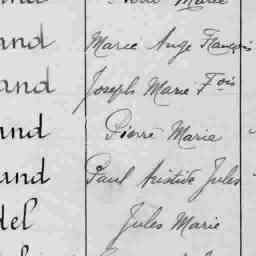 Marie
and Marie Ange François
and Joseph Marie Fois
and Pierre Marie
and Paul Aristide Jules
del Jules Marie